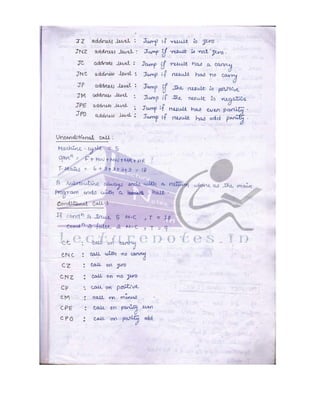 JZ address level : Jump if result is zero.
JNZ address level : Jump if result is not zero.
JC address level : Jump if result has a carry
JNC address level : Jump if result has no carry
JP address level : Jump if the result is positive
JM address level : Jump if the result is negative
JPE address level : Jump if result has even parity
JPO address level : Jump if result has odd parity
Unconditional call :
Machine cycle = 5
T-states = 6+3+3+3+3 = 18
A subroutine always ends with a return where as the main
program ends with a halt
Conditional call :
If condn is true 5 M.C , T = 18
condn is false 2 M.C , T = 9
Lecturenotes.in
CC : call on carry
CNC : call with no carry
CZ : call on zero
CNZ : call on no zero
CP : call on positive
CM : call on minus
CPE : call on parity even
CPO : call on parity odd